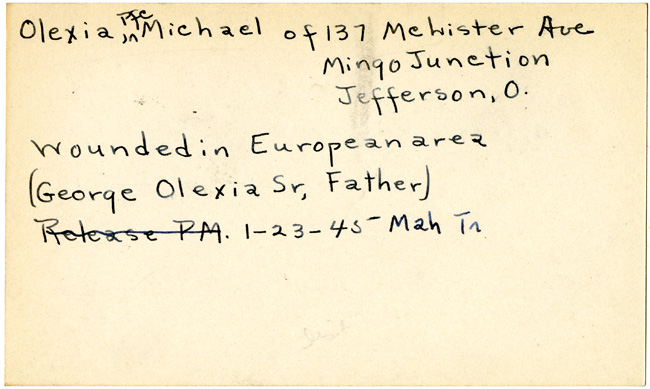 Olexia, Pfc Michael of 137 McLister Ave
Mingo Junction
Jefferson, O.
Wounded in European area
(George Olexia Sr, Father)
Release P.M. 1-23-45 Mah Tr